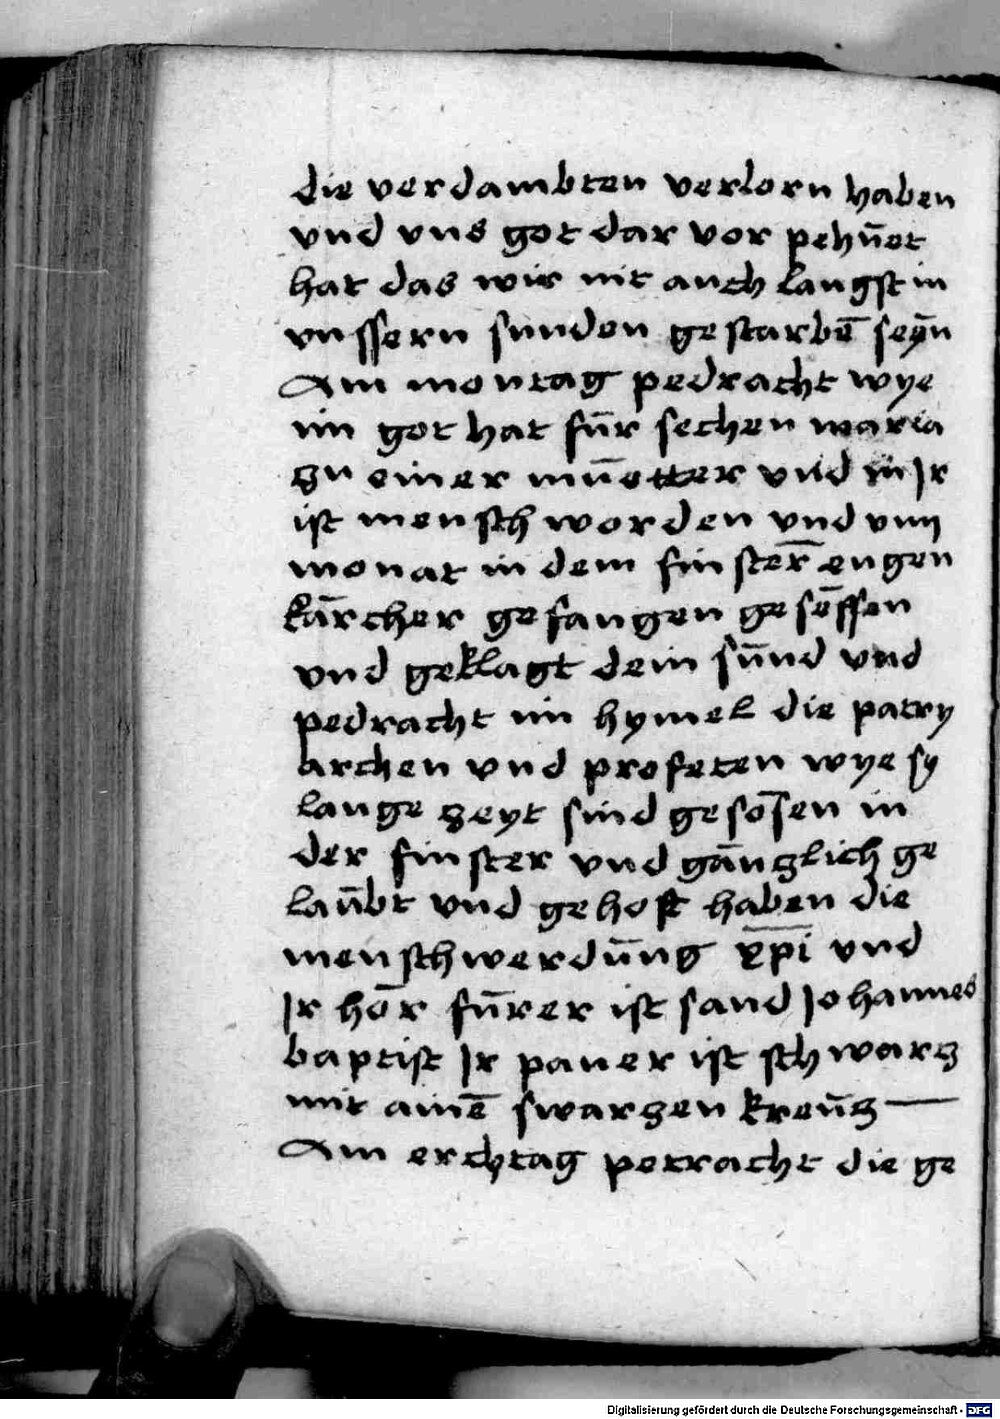 die verdambten verlorn haben
vnd vns got dar vor pehūet
hat das wir nit auch langst in
vnssern sunden gestarbē seyn̄
Am montag pedracht wye
im got hat fūr sechen maria
zu einer mūetter vnd in Ir
ist mensch worden vnd viiij
monat in dem finster̄ engen
kārcher gefangen gesēssen
vnd geklagt dein sūnd vnd
pedracht im hymel die patry
archen vnd profeten wye sy
lange zeyt sind gesōssen in
der finster vnd gānzlich ge
laūbt vnd gehoft haben die
menschwerdūng x̄p̄i vnd
Ir hōr fūrer ist sand Johannes
baptist Ir paner ist schwarz
mit ainē swarzen kreūz
Am erchtag petracht die ge
Digitalisierung gefördert durch die Deutsche Forschungsgemeinschaft - DFG